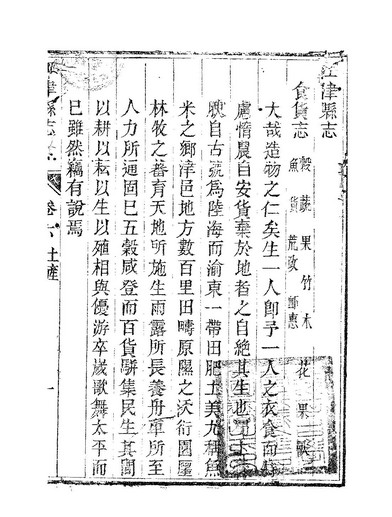 江津縣志
食貨志
穀 蔬 果 竹 木 花 果
魚 貨 荒政
大哉造物之仁矣生一人卽予一人之衣食而
惰農自安貨棄於地者之自絕其生也
自古號爲陸海而渝東一帶田肥土美尤稱魚
米之鄉津邑地方數百里田疇原隰之沃衍園囿
林牧之善育天地所施生雨露所長養舟車所至
人力所通固已五穀咸登而百貨駢集民生其間
以耕以耘以生以殖相與優游卒歲歌舞太平而
已雖然竊有說焉
津縣志
卷六 土產
一